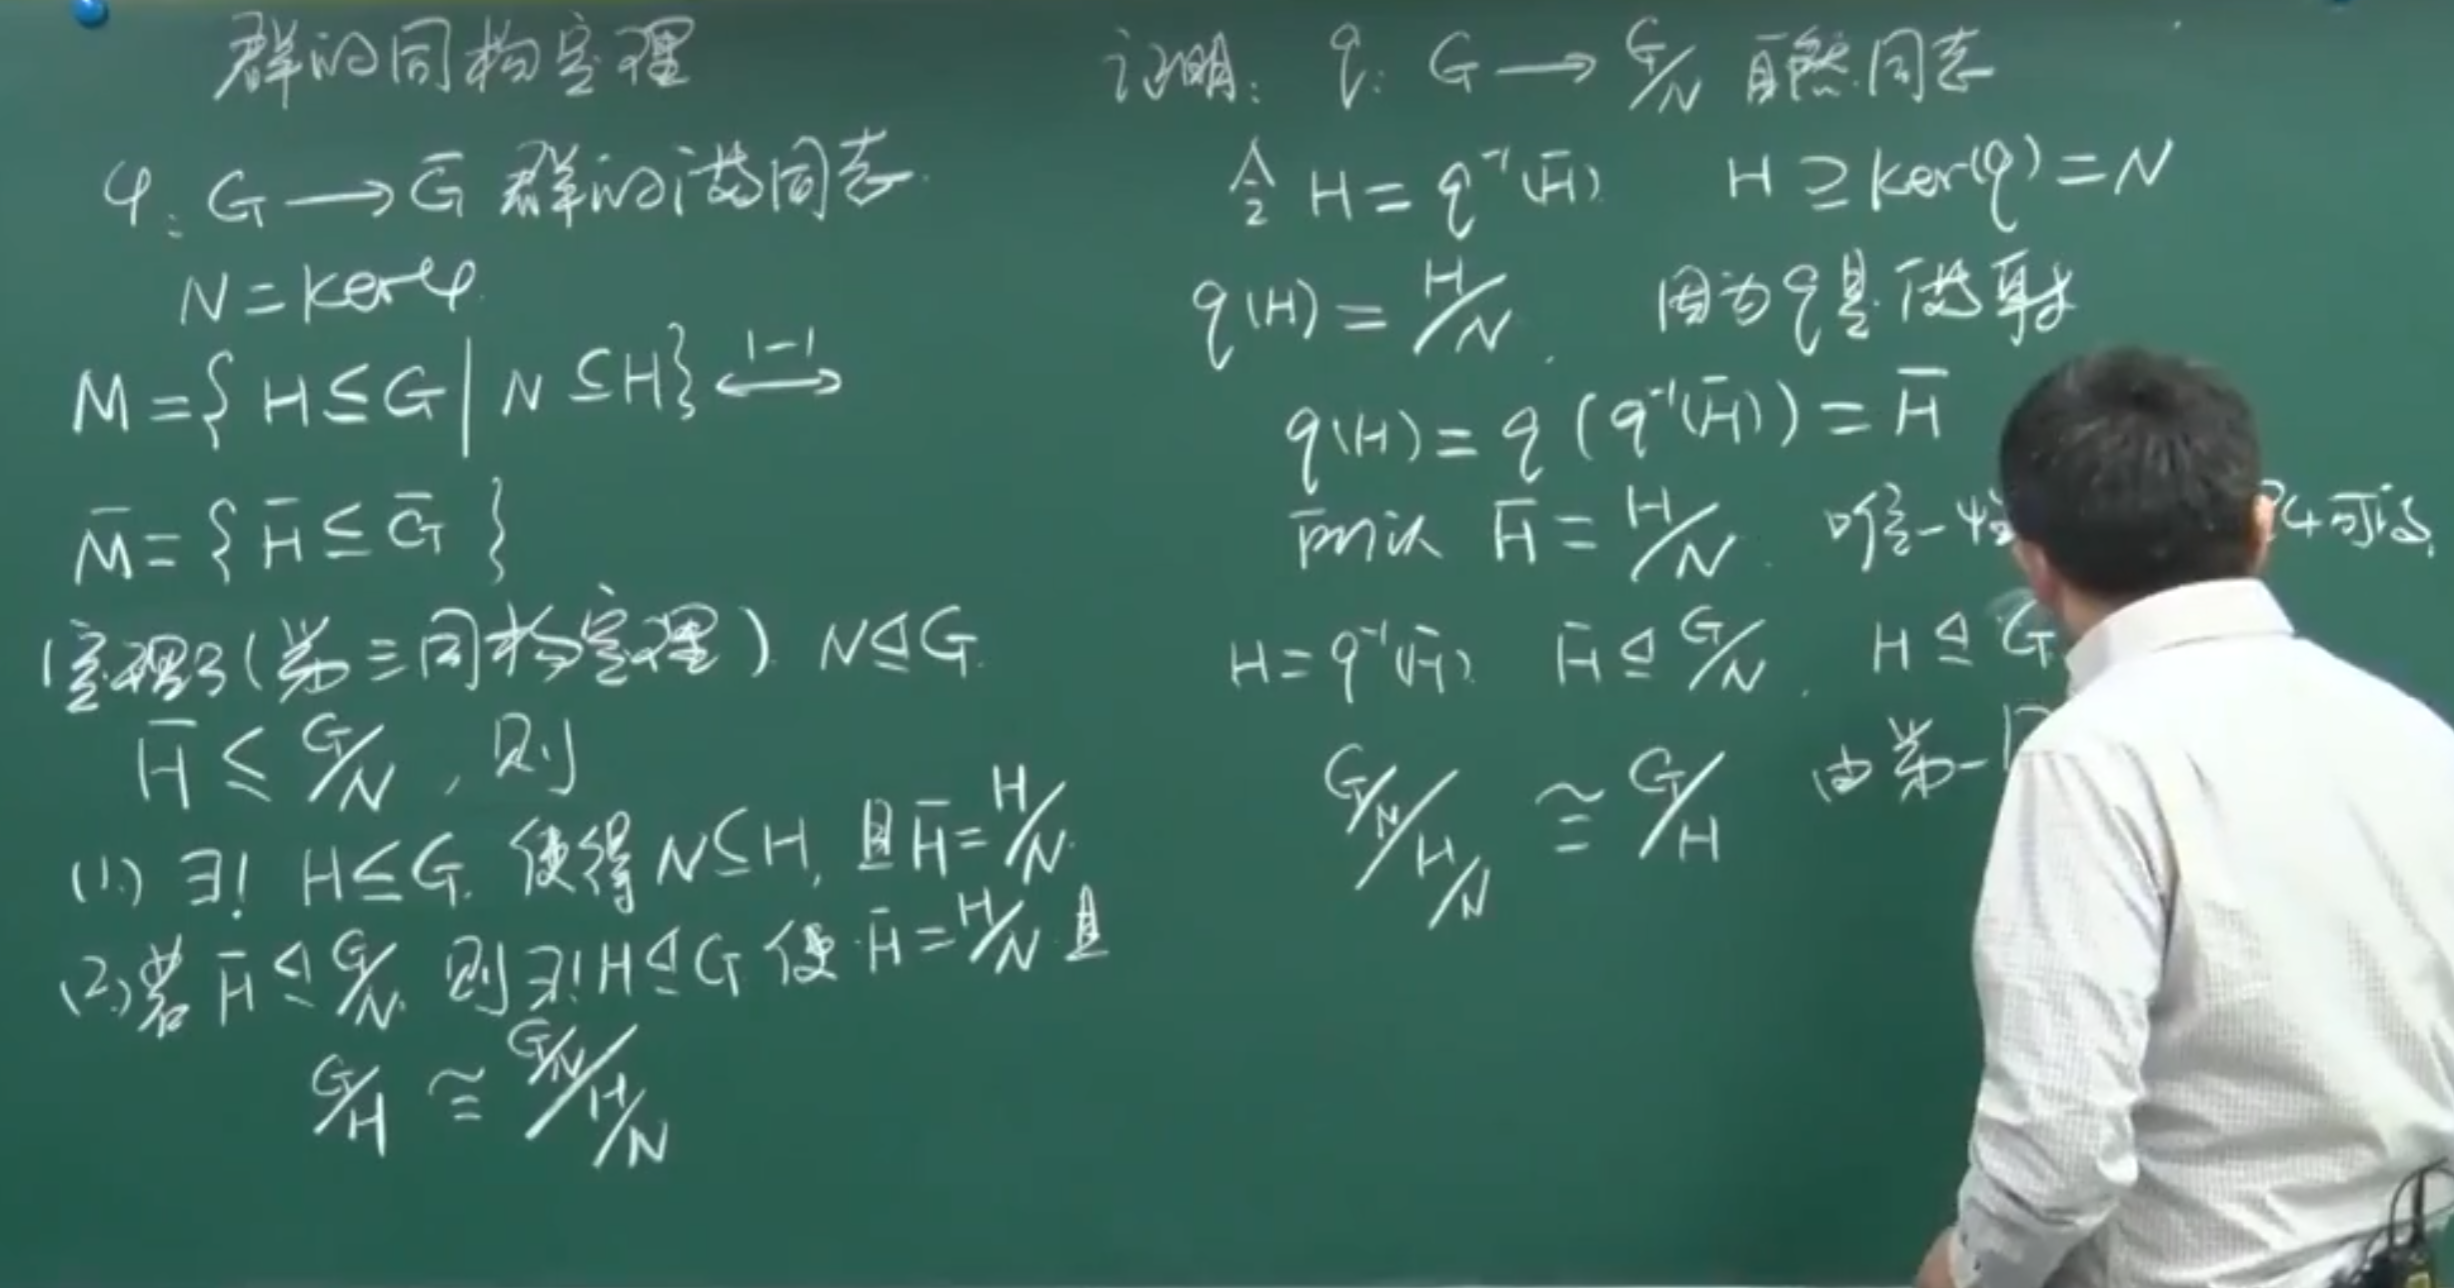 群的同构定理
φ: G ⟶ G̅ 群的满同态.
N = Kerφ.
M = { H ≤ G | N ⊆ H } ⟷ 1-1
M̅ = { H̅ ≤ G̅ }
定理3 (第三同构定理) N ⊴ G.
H̅ ≤ G/N , 则
(1.) ∃! H ≤ G. 使得 N ⊆ H, 且 H̅ = H/N.
(2.) 若 H̅ ⊴ G/N. 则 ∃! H ⊴ G 使 H̅ = H/N 且
G/H ≅ G/N / H/N
证明: q: G ⟶ G/N 自然同态
令 H = q⁻¹(H̅). H ⊇ Ker(q) = N
q(H) = H/N. 因为 q 是满射
q(H) = q(q⁻¹(H̅)) = H̅
所以 H̅ = H/N. 唯一 4可证.
H = q⁻¹(H̅). H̅ ⊴ G/N. H ⊴ G
G/N / H/N ≅ G/H 由第一